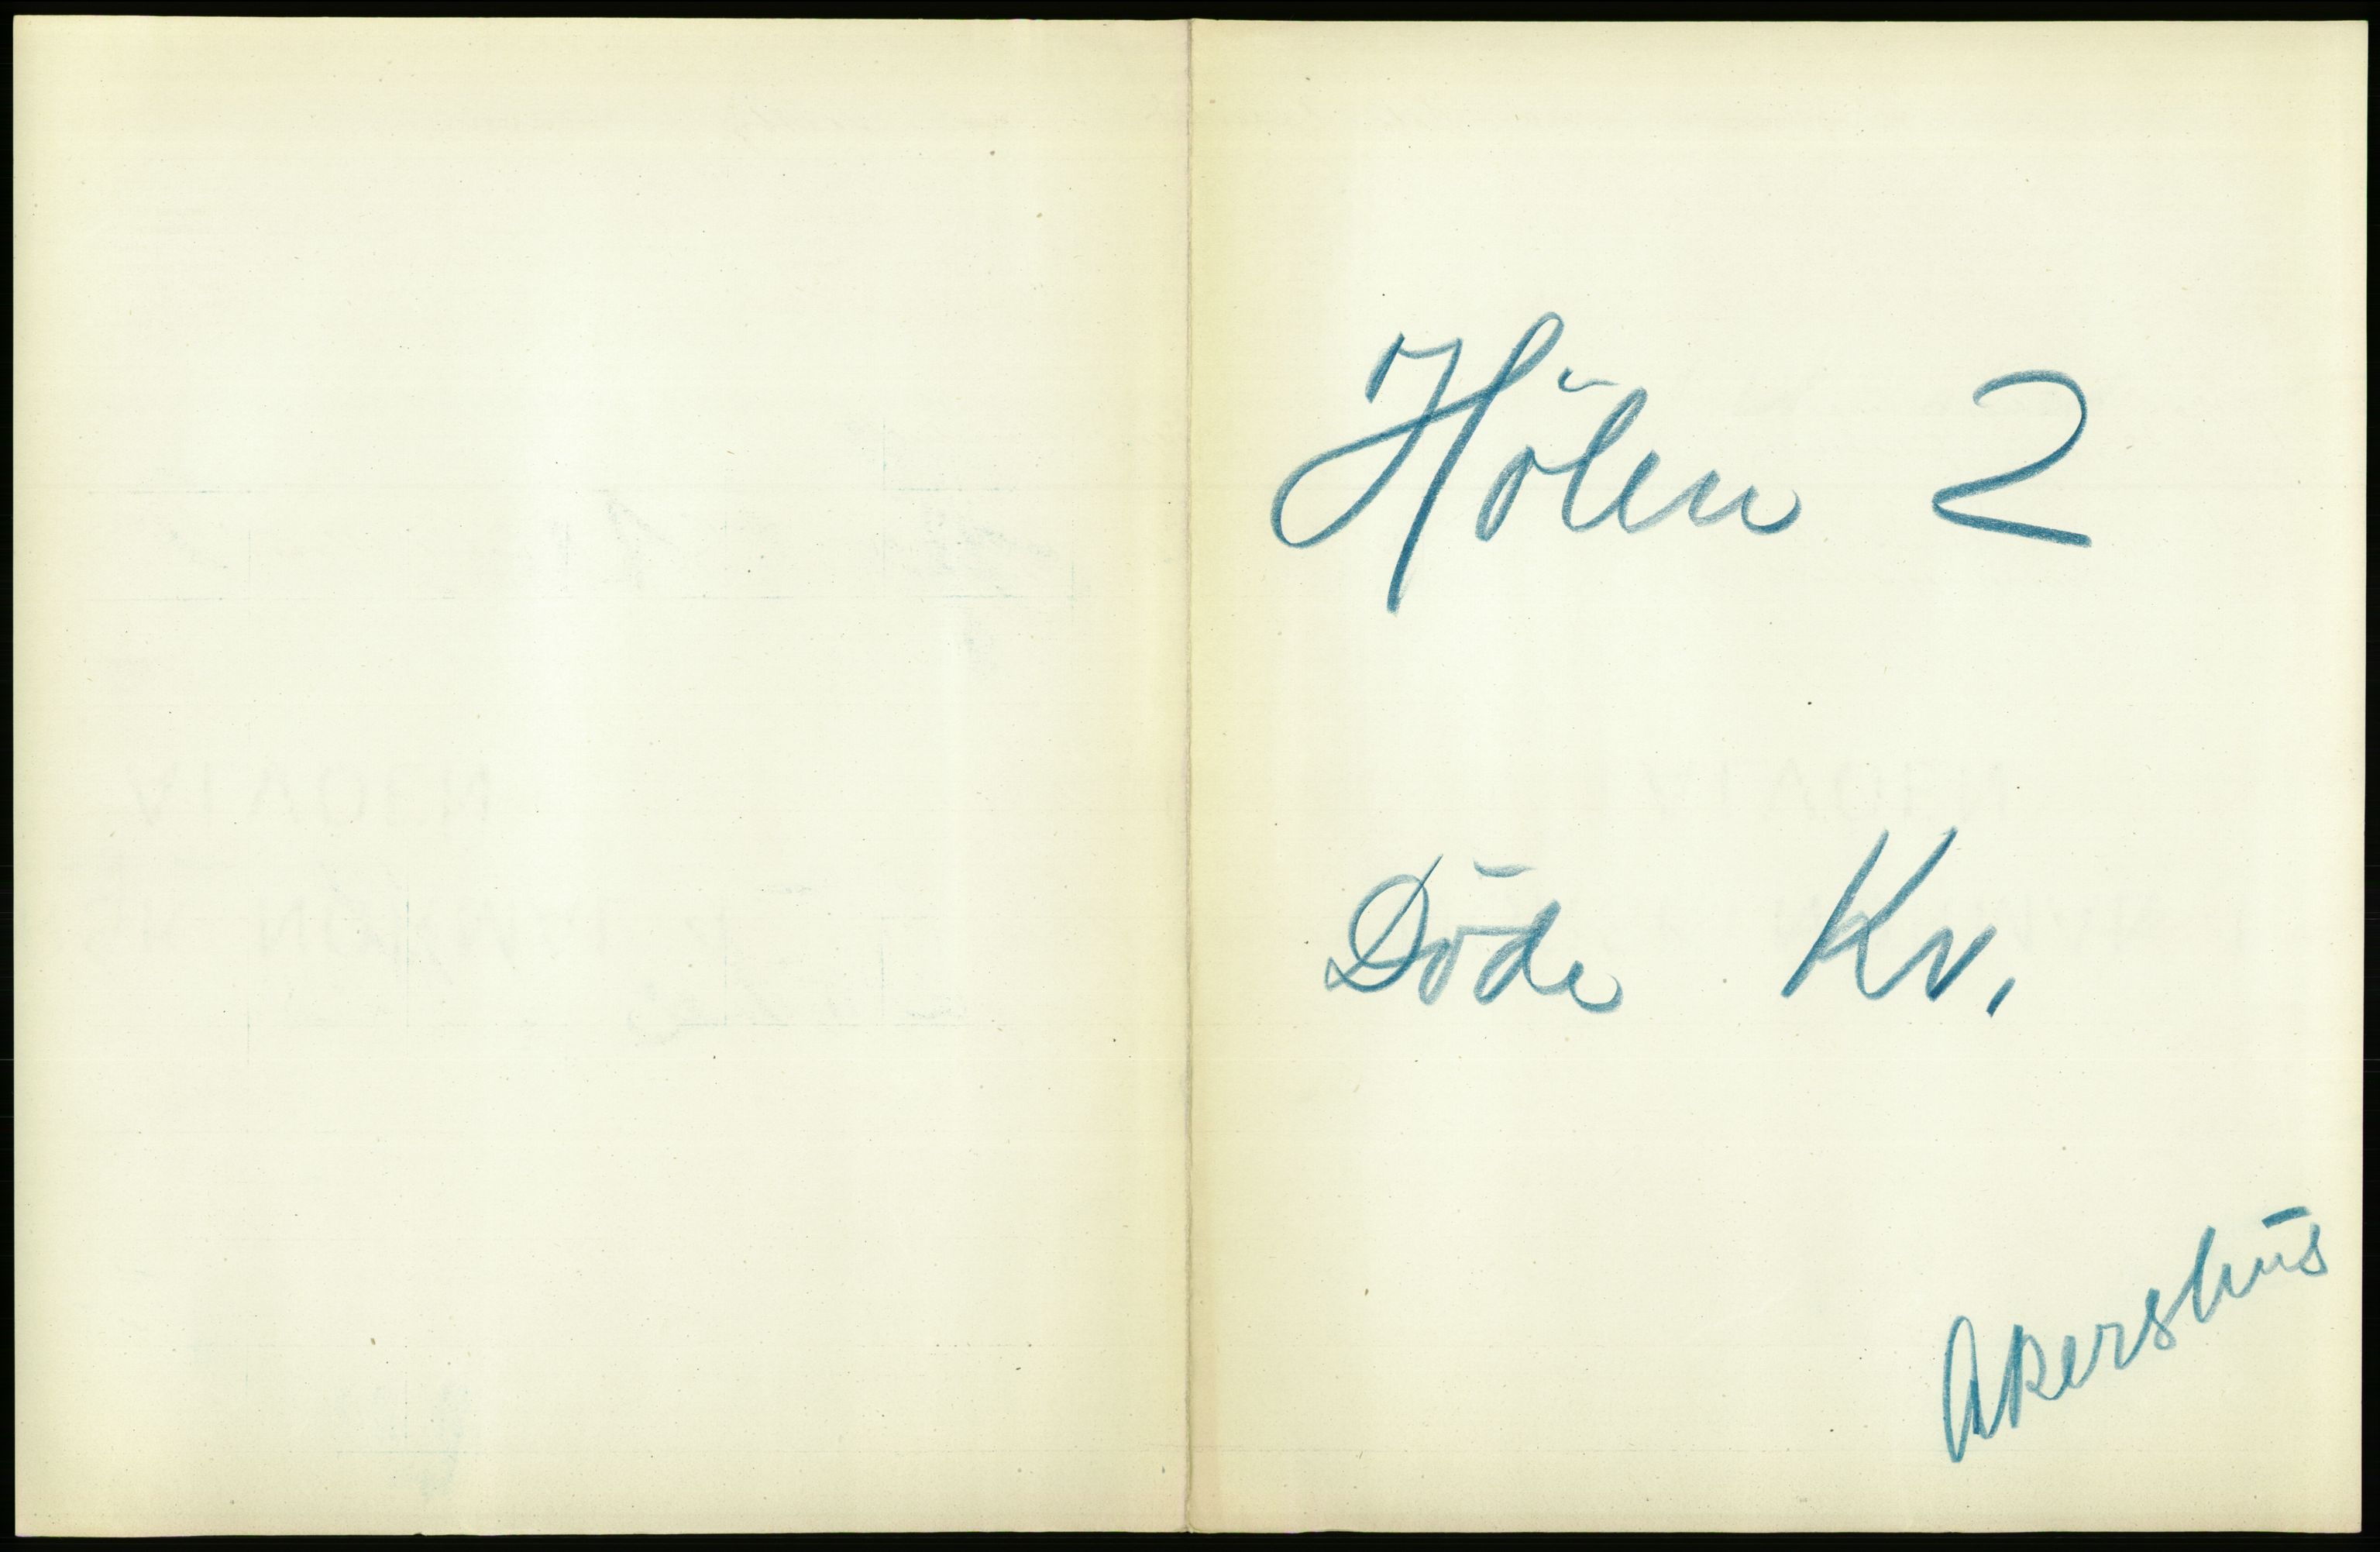 Hölen 2
Döde Kv.
Akershus